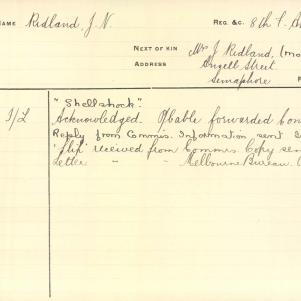 NAME Ridland, J. N. REG. &C. 8th F. A
NEXT OF KIN Mrs J Ridland, (mo
ADDRESS Angell Street
Semaphore
I/L "Shellshock".
Acknowledged. Cable forwarded Com
Reply from Commis. Information sent
"Slip" received from Commrs. Copy sen
Letter " " Melbourne Bureau.